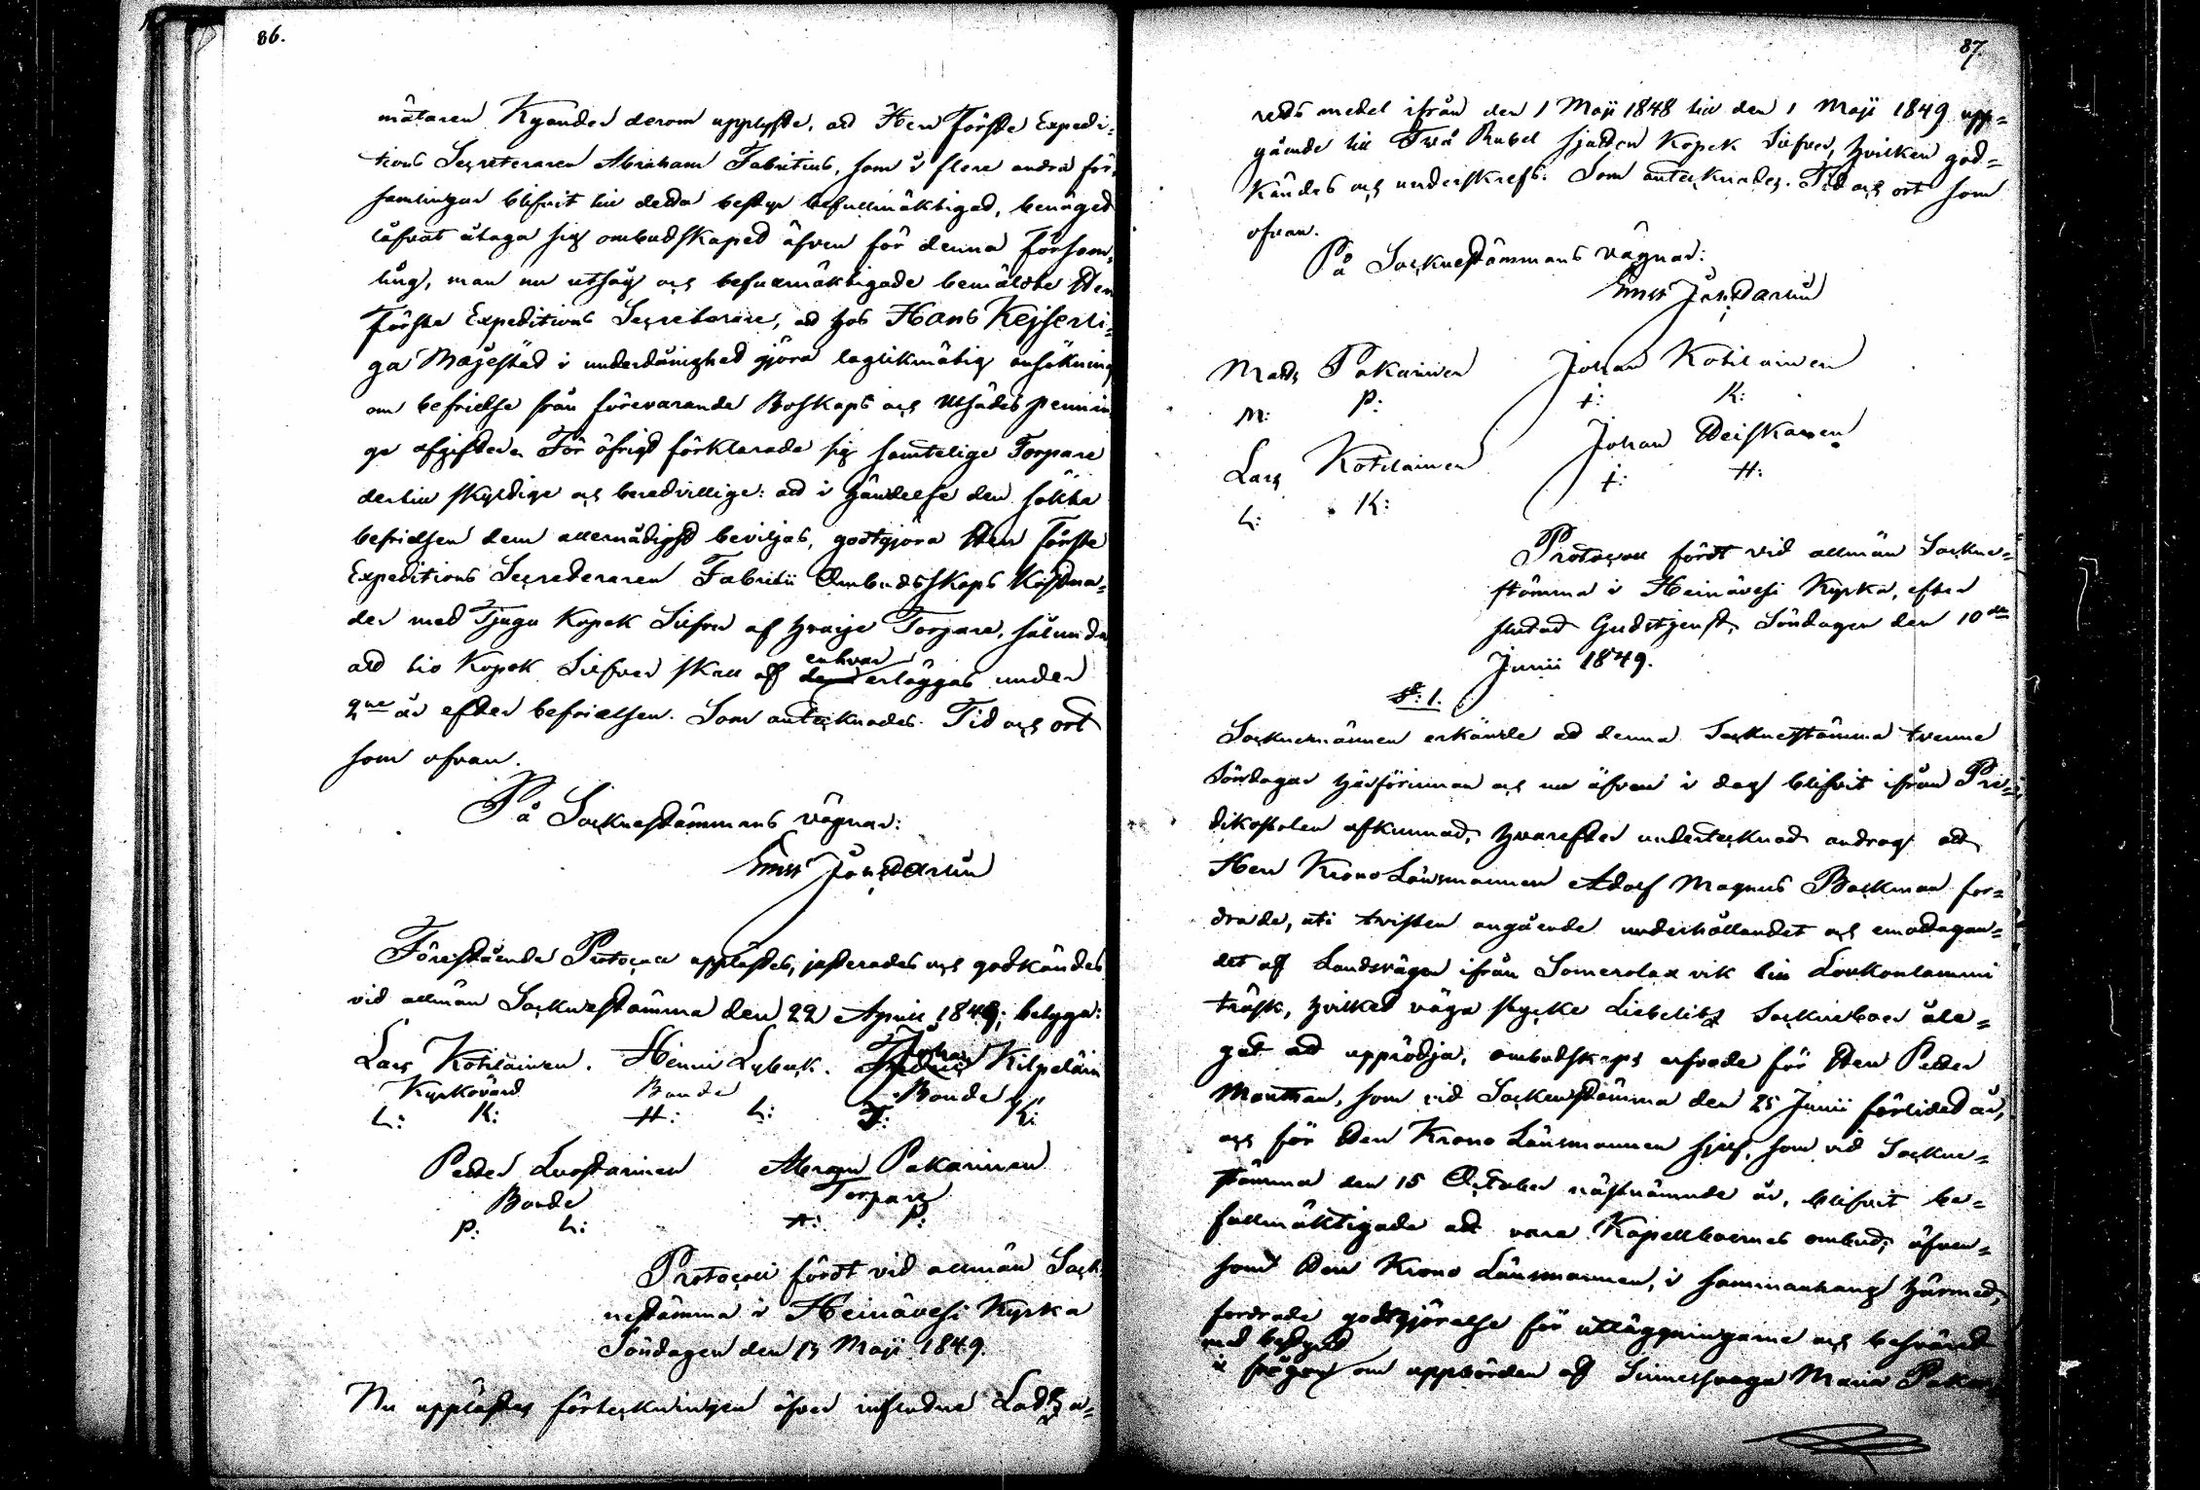 86.
mätaren Kyander derom upplyste, att Herr Förste Expedi-
tions Secreteraren Abraham Fabritius, som i flere andra för-
samlingar blifvit till detta bestyr befullmäktigad, benäget
låfvat åtaga sig ombudskapet äfven för denna Försam-
ling, man nu utsåg och befullmäktigade bemälte Herr
Förste Expeditions Secreterare, att hos Hans Kejserli-
ga Majestät i underdånighet göra laglikmätig ansökning
om befrielse från förevarande Boskaps och Utsädes pennin-
ge afgifter. För öfrigt förklarade sig samtelige Torpare
dertill skyldige och beredvillige: att i händelse den sökta
befrielsen dem allernådigst beviljas, godtgjöra Herr Förste
Expeditions Secreteraren Fabritii Ombudskaps Kostna-
der med Tjugu Kopek Silfver af hvarje Torpare, sålunda
att tio Kopek Silfver skall af enhvar erläggas under
2ne år efter befrielsen. Som antecknades. Tid och ort
som ofvan.
På Socknestämmans vägnar:
Förestående Protocoll upplästes, justerades och godkändes
vid allmän Socknestämma den 22 April 1849; betyga:
Lars Kotilainen. Henric Lybeck. Johan Kilpeläin
Kyrkovärd Bonde Bonde
L: K: H: L: J: K:
Petter Luostarinen Abram Pakarinen
Bonde Torpare
P: L: A: P:
Protocoll fördt vid allmän Sock-
nestämma i Heinävesi Kyrka
Söndagen den 13 Maji 1849.
Nu upplästes förteckningen öfver influtne
87.
reds medel ifrån den 1 Maji 1848 till den 1 Maji 1849 upp-
gående till Två Rubel sjutton Kopek Silfver, hvilken god-
kändes och underskrefs. Som antecknades. Tid och ort som
ofvan.
På Sockenstämmans vägnar:
Mats Pakarinen Johan Kotilainen
M: P: J: K:
Lars Kotilainen Johan Heiskanen
L: K: J: H:
Protocoll fördt vid allmän Sockne-
stämma i Heinävesi Kyrka, efter
slutad Gudstjenst, Söndagen den 10de
Junii 1849.
§: 1.
Socknemännen erkände att denna Socknestämma tvenne
Söndagar härförinnan och nu äfven i dag blifvit ifrån Pre-
dikostolen afkunnad, hvarefter undertecknad androg att
Herr Krono Länsmannen Adolf Magnus Backman for-
drade, uti tvisten angående underhållandet och emottagan-
det af Landsvägen ifrån Somerolax vik till Loukonlammi
träsk, hvilket väga stycke Libelits Sockneboer åle-
gat att upprödja, ombudskaps arfvode för Herr Petter
Monthan, som vid Sockenstämma den 25 Junii förlidet år,
och för Herr Krono Länsmannen sjelf, som vid Sockne-
stämma den 15 October nästnämnde år, blifvit be-
fullmäktigade att vara Kapellboernes ombud; äfven-
som Herr Krono Länsmannen, i sammanhang härmed,
fordrade godtgjörelse för utläggningarne och besväret
med bestyret
i frågan om uppvården af Sinnessvaga Maria